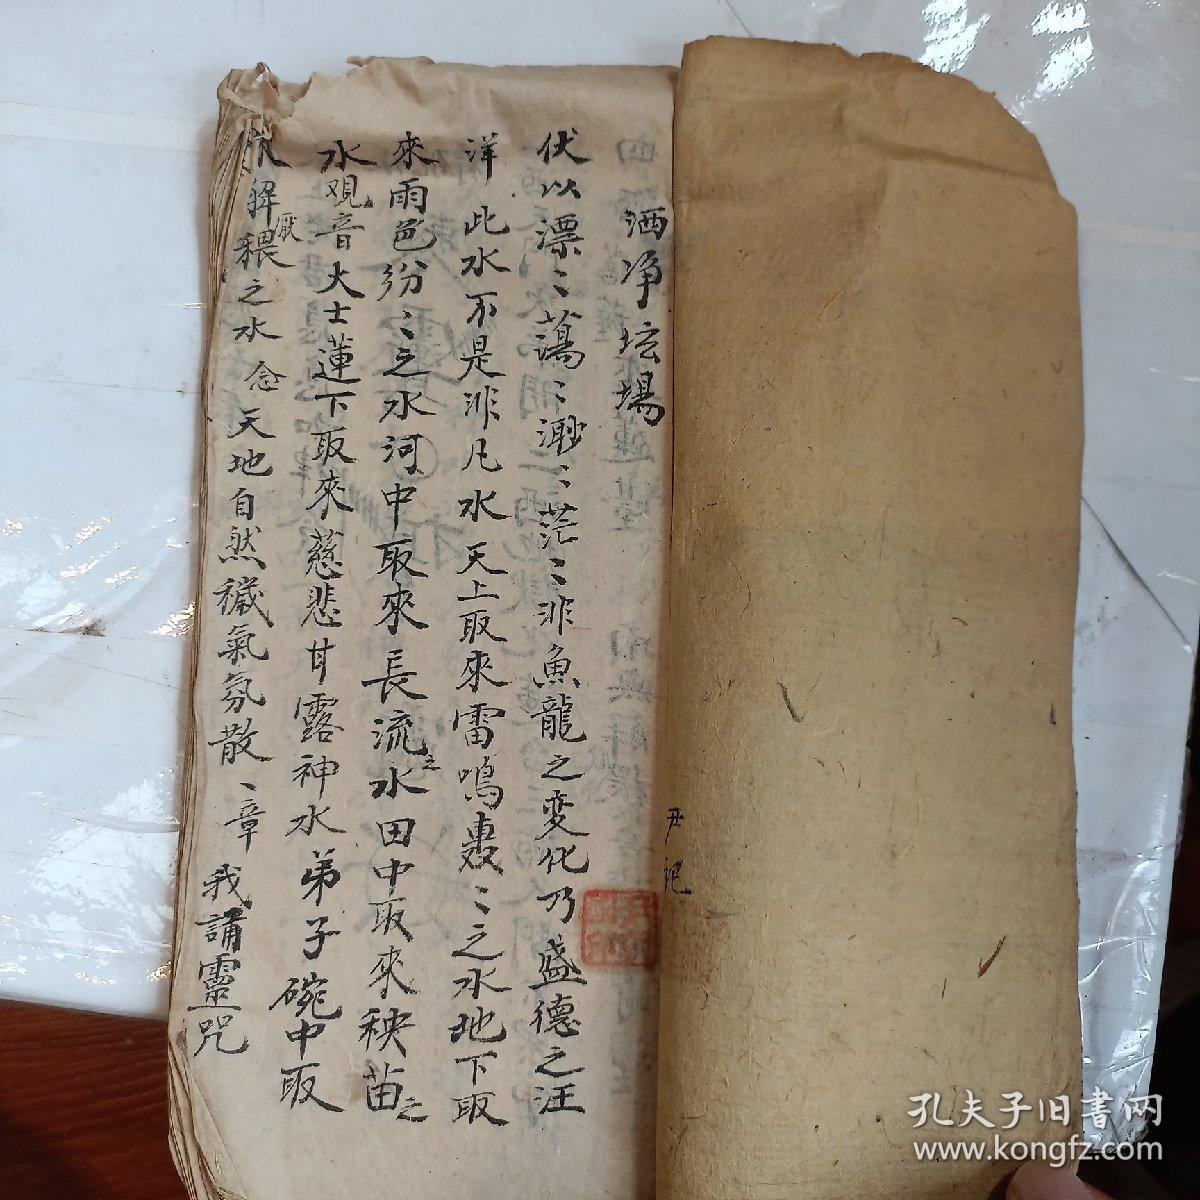 洒净坛場
伏以漂〻蕩〻渺〻茫〻非魚龍之变化乃盛德之汪
洋此水不是非凡水天上取來雷鳴轟〻之水地下取
來雨邑紛〻之水河中取來長流之水田中取來秧苗之
水观音大士蓮下取來慈悲甘露神水弟子碗中取
來解厭穢之水念天地自然穢氣氛散〻章我誦靈咒
尹記
孔夫子旧書网
www.kongfz.com